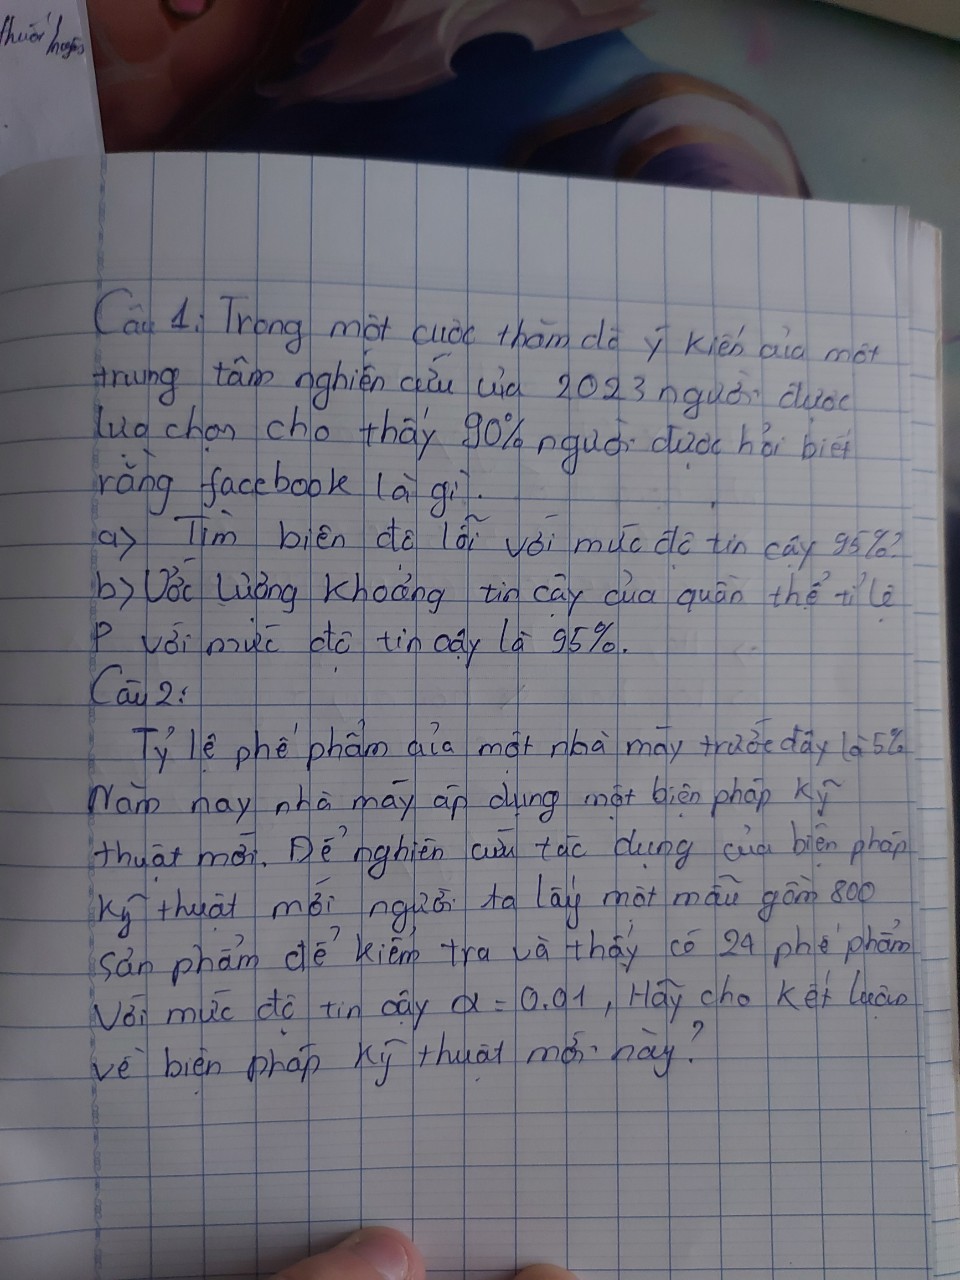 thuốc
Câu 1: Trong một cuộc thăm dò ý kiến của một
trung tâm nghiên cứu của 2023 người được
lựa chọn cho thấy 90% người được hỏi biết
rằng facebook là gì.
a) Tìm biên độ lỗi với mức độ tin cậy 95%?
b) Ước lượng khoảng tin cậy của quần thể tỉ lệ
P với mức độ tin cậy là 95%.
Câu 2:
Tỷ lệ phế phẩm của một nhà máy trước đây là 5%
Năm nay nhà máy áp dụng một biện pháp kỹ
thuật mới. Để nghiên cứu tác dụng của biện pháp
kỹ thuật mới người ta lấy một mẫu gồm 800
sản phẩm để kiểm tra và thấy có 24 phế phẩm
Với mức độ tin cậy α = 0.01, Hãy cho kết luận
về biện pháp kỹ thuật mới này?